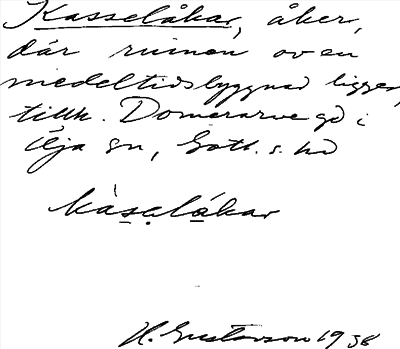 Kasselåkar, åker,
där ruinen av en
medeltidsbyggnad ligger,
tillh. Domerarve gd i
Öja sn, Gotl. s. hd
kàsalåkar
H. Gustavson 1938